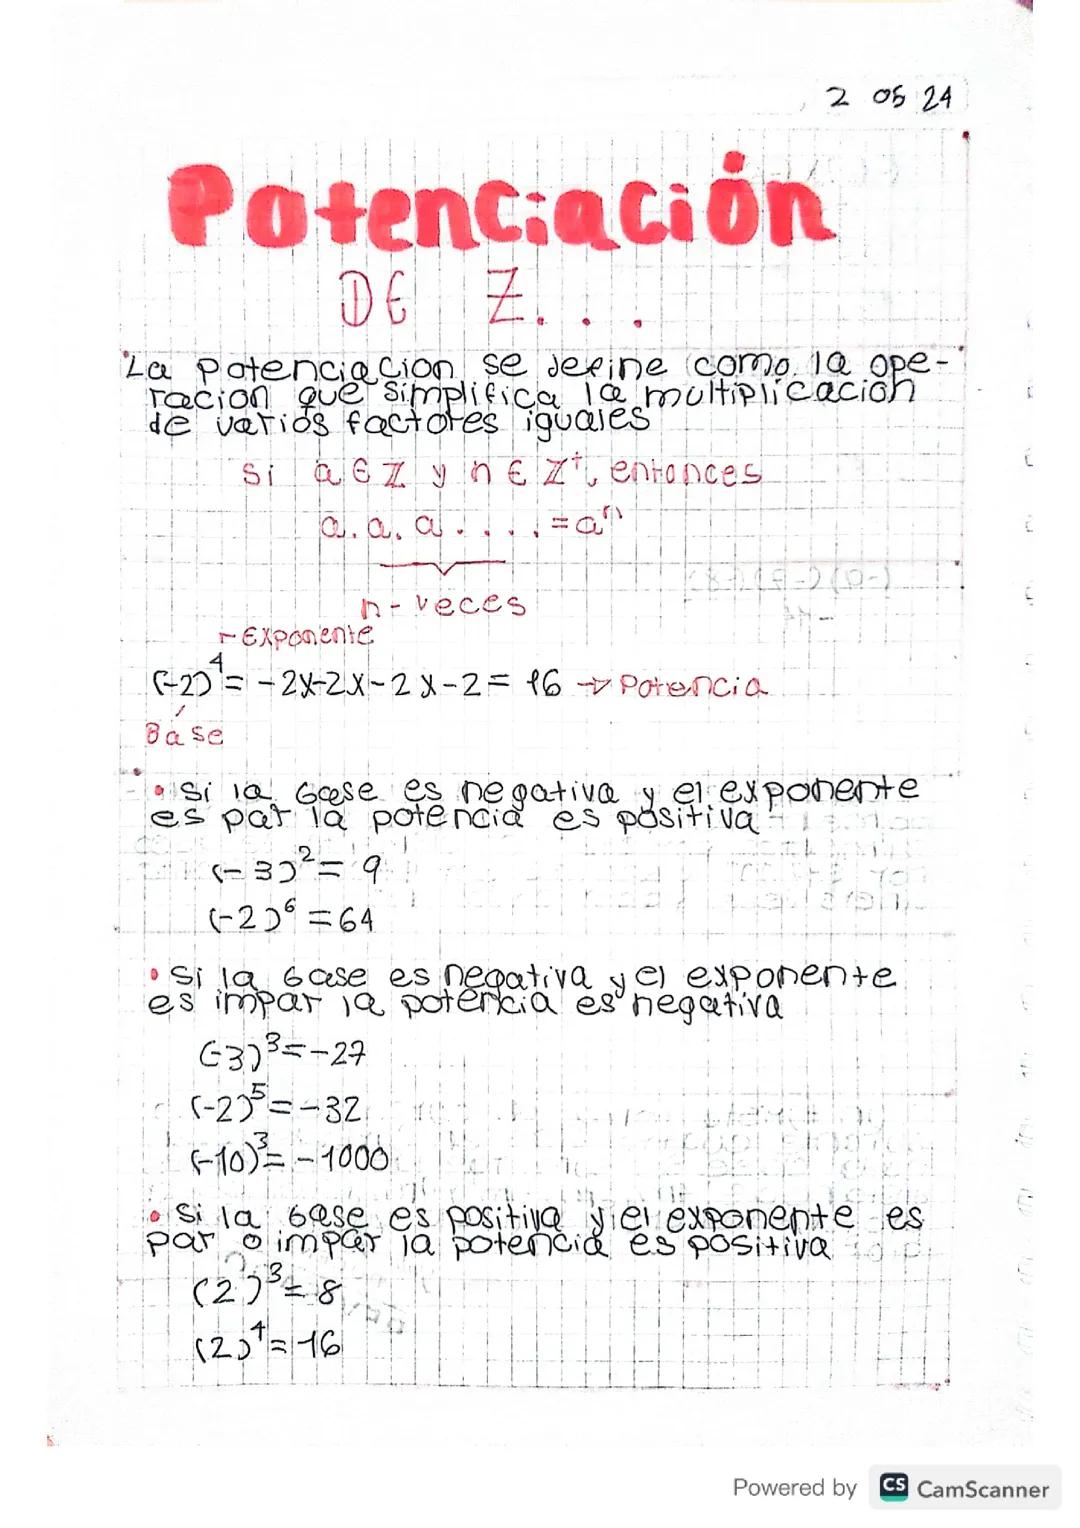 2 05 24
Potenciación
DE Z...
La Potenciacion se define como la ope-
racion que simplifica la multiplicación
de varios factores iguales
Si a ∈ Z y n ∈ Z⁺, entonces
a. a. a . . . . = aⁿ
n - veces
Exponente
(-2)⁴ = -2x-2x-2x-2 = 16 → Potencia
Base
• Si la base es negativa y el exponente
es par la potencia es positiva
(-3)² = 9
(-2)⁶ = 64
• Si la base es negativa y el exponente
es impar la potencia es negativa
(-3)³ = -27
(-2)⁵ = -32
(-10)³ = -1000
• Si la base es positiva y el exponente es
par o impar la potencia es positiva
(2)³ = 8
(2)⁴ = 16
Powered by CS CamScanner